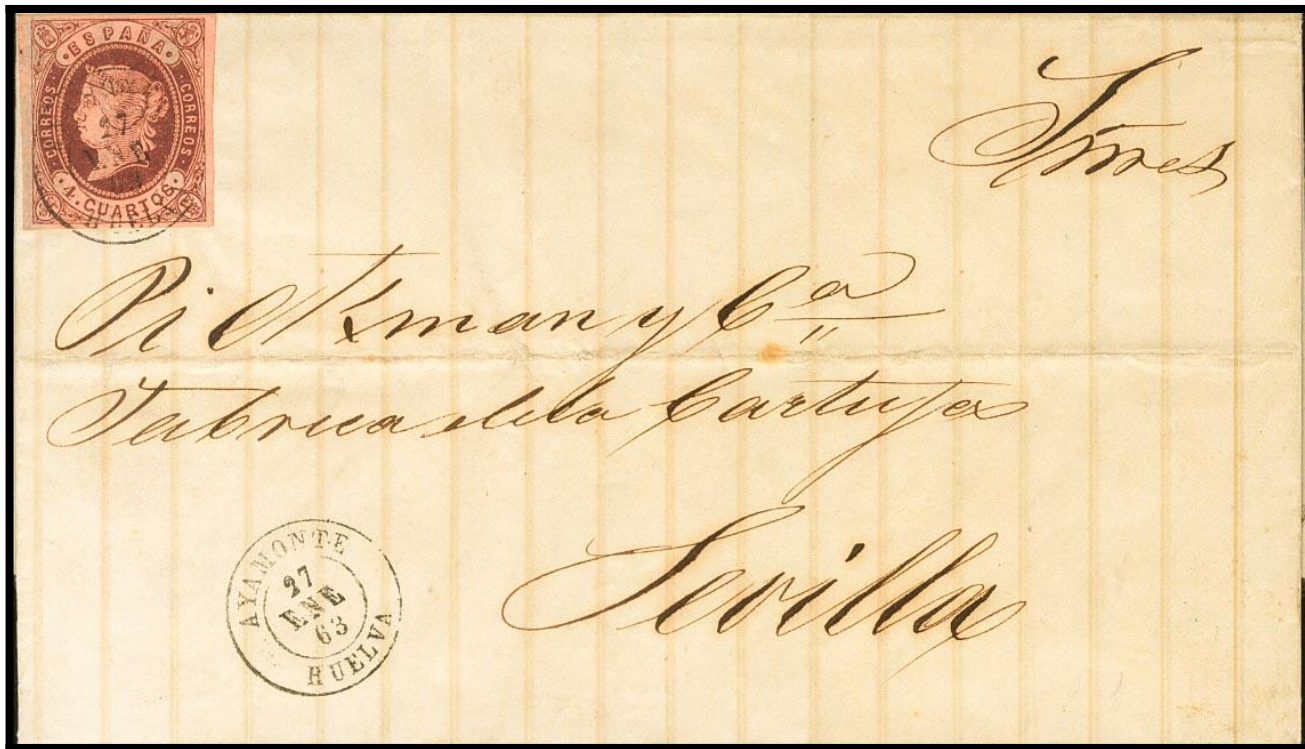 ESPAÑA
CORREOS CORREOS
4 CUARTOS
27
ENE
HUELVA
Sres
Pickman y Cª
Fabrica de la Cartuja
Sevilla
AYAMONTE
27
ENE
63
HUELVA